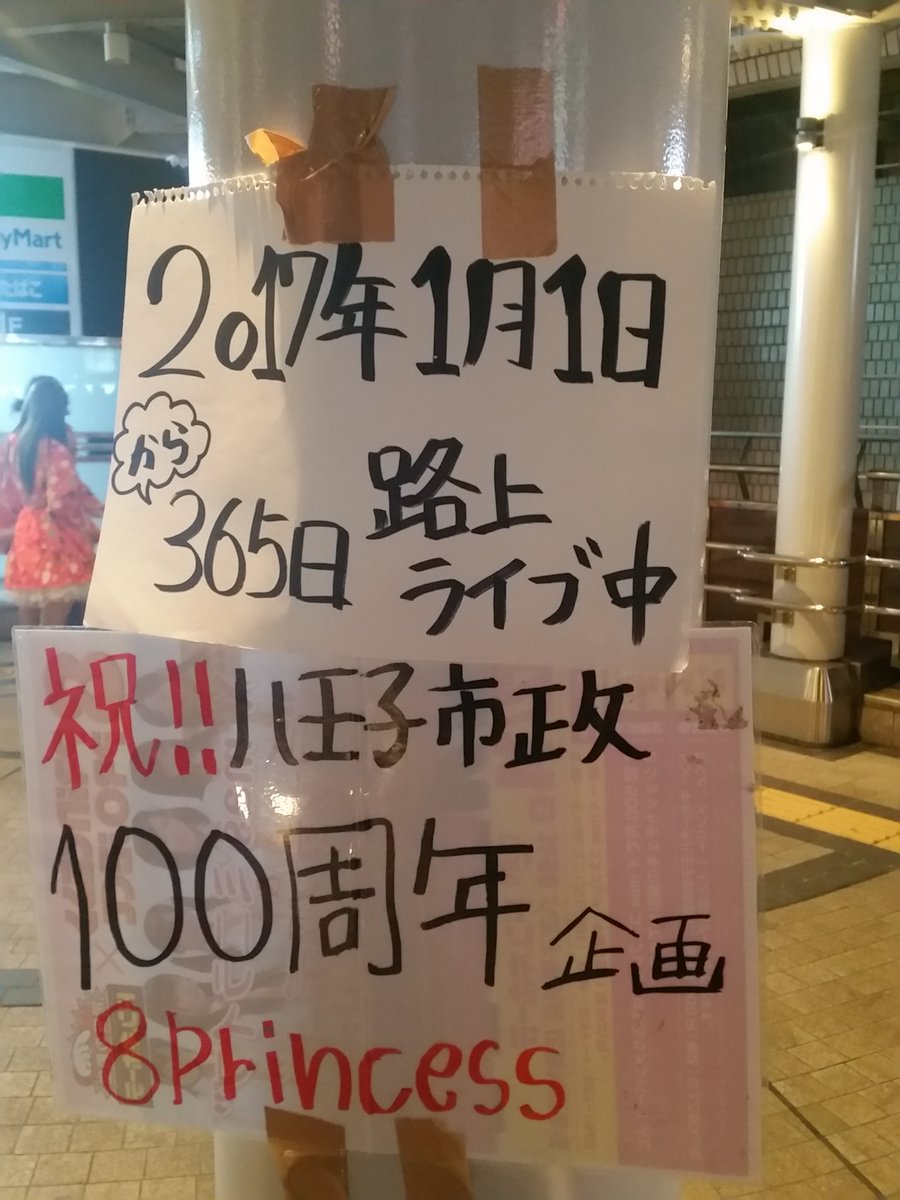 2017年1月1日
から
365日 路上
ライブ中
祝!!八王子市政
100周年 企画
8Princess
yMart
たばこ